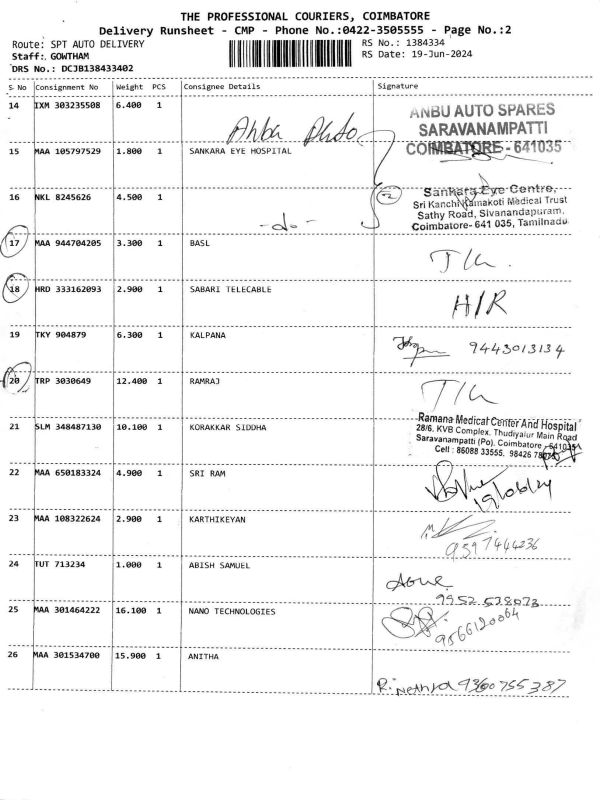 THE PROFESSIONAL COURIERS, COIMBATORE
Delivery Runsheet - CMP - Phone No.:0422-3505555 - Page No.:2
Route: SPT AUTO DELIVERY RS No.: 1384334
Staff: GOWTHAM RS Date: 19-Jun-2024
DRS No.: DCJB138433402
S No Consignment No Weight PCS Consignee Details Signature
14 IXM 303235508 6.400 1
Anba Auto
ANBU AUTO SPARES
SARAVANAMPATTI
COIMBATORE - 641035
15 MAA 105797529 1.800 1 SANKARA EYE HOSPITAL
16 NKL 8245626 4.500 1
-do-
Sankara Eye Centre,
Sri Kanchi Kamakoti Medical Trust
Sathy Road, Sivanandapuram,
Coimbatore- 641 035, Tamilnadu
17 MAA 944704205 3.300 1 BASL
18 HRD 333162093 2.900 1 SABARI TELECABLE
H/R
19 TKY 904879 6.300 1 KALPANA
9443013134
20 TRP 3030649 12.400 1 RAMRAJ
21 SLM 348487130 10.100 1 KORAKKAR SIDDHA
Ramana Medical Center And Hospital
28/6, KVB Complex, Thudiyalur Main Road
Saravanampatti (Po), Coimbatore - 641035
Cell : 86088 33555, 98426
22 MAA 650183324 4.900 1 SRI RAM
19/06/24
23 MAA 108322624 2.900 1 KARTHIKEYAN
9597444236
24 TUT 713234 1.000 1 ABISH SAMUEL
9952 538073
25 MAA 301464222 16.100 1 NANO TECHNOLOGIES
9566120064
26 MAA 301534700 15.900 1 ANITHA
R. Nethra 9360755387